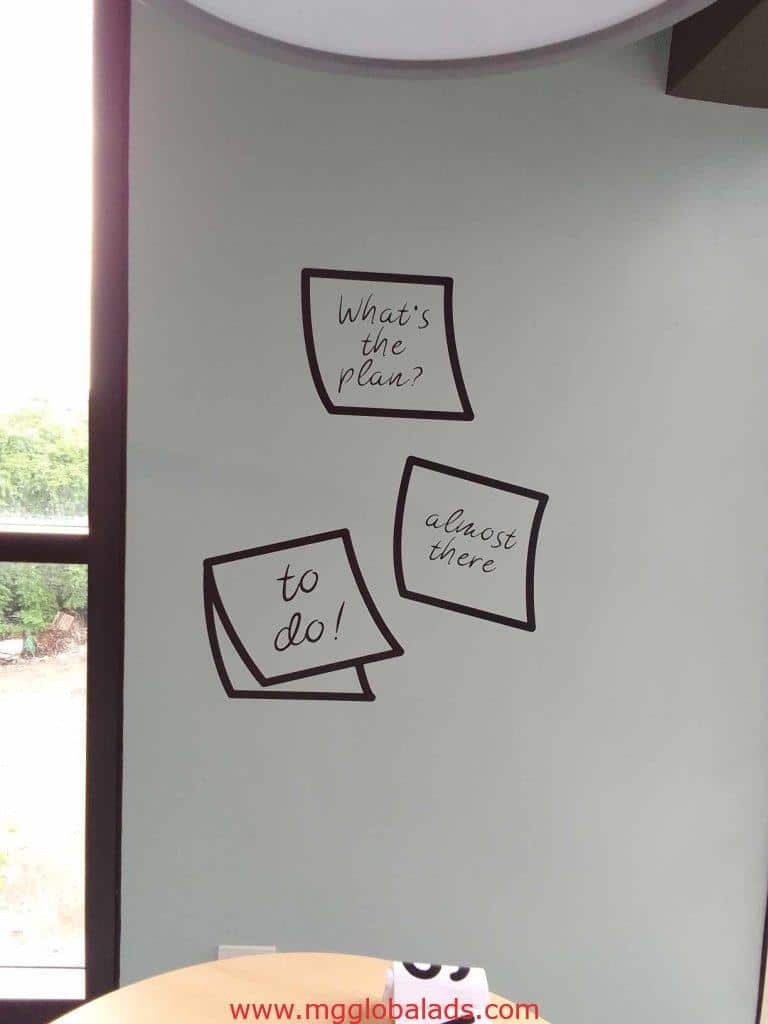 What's
the
plan?
almost
there
to
do!
www.mgglobalads.com